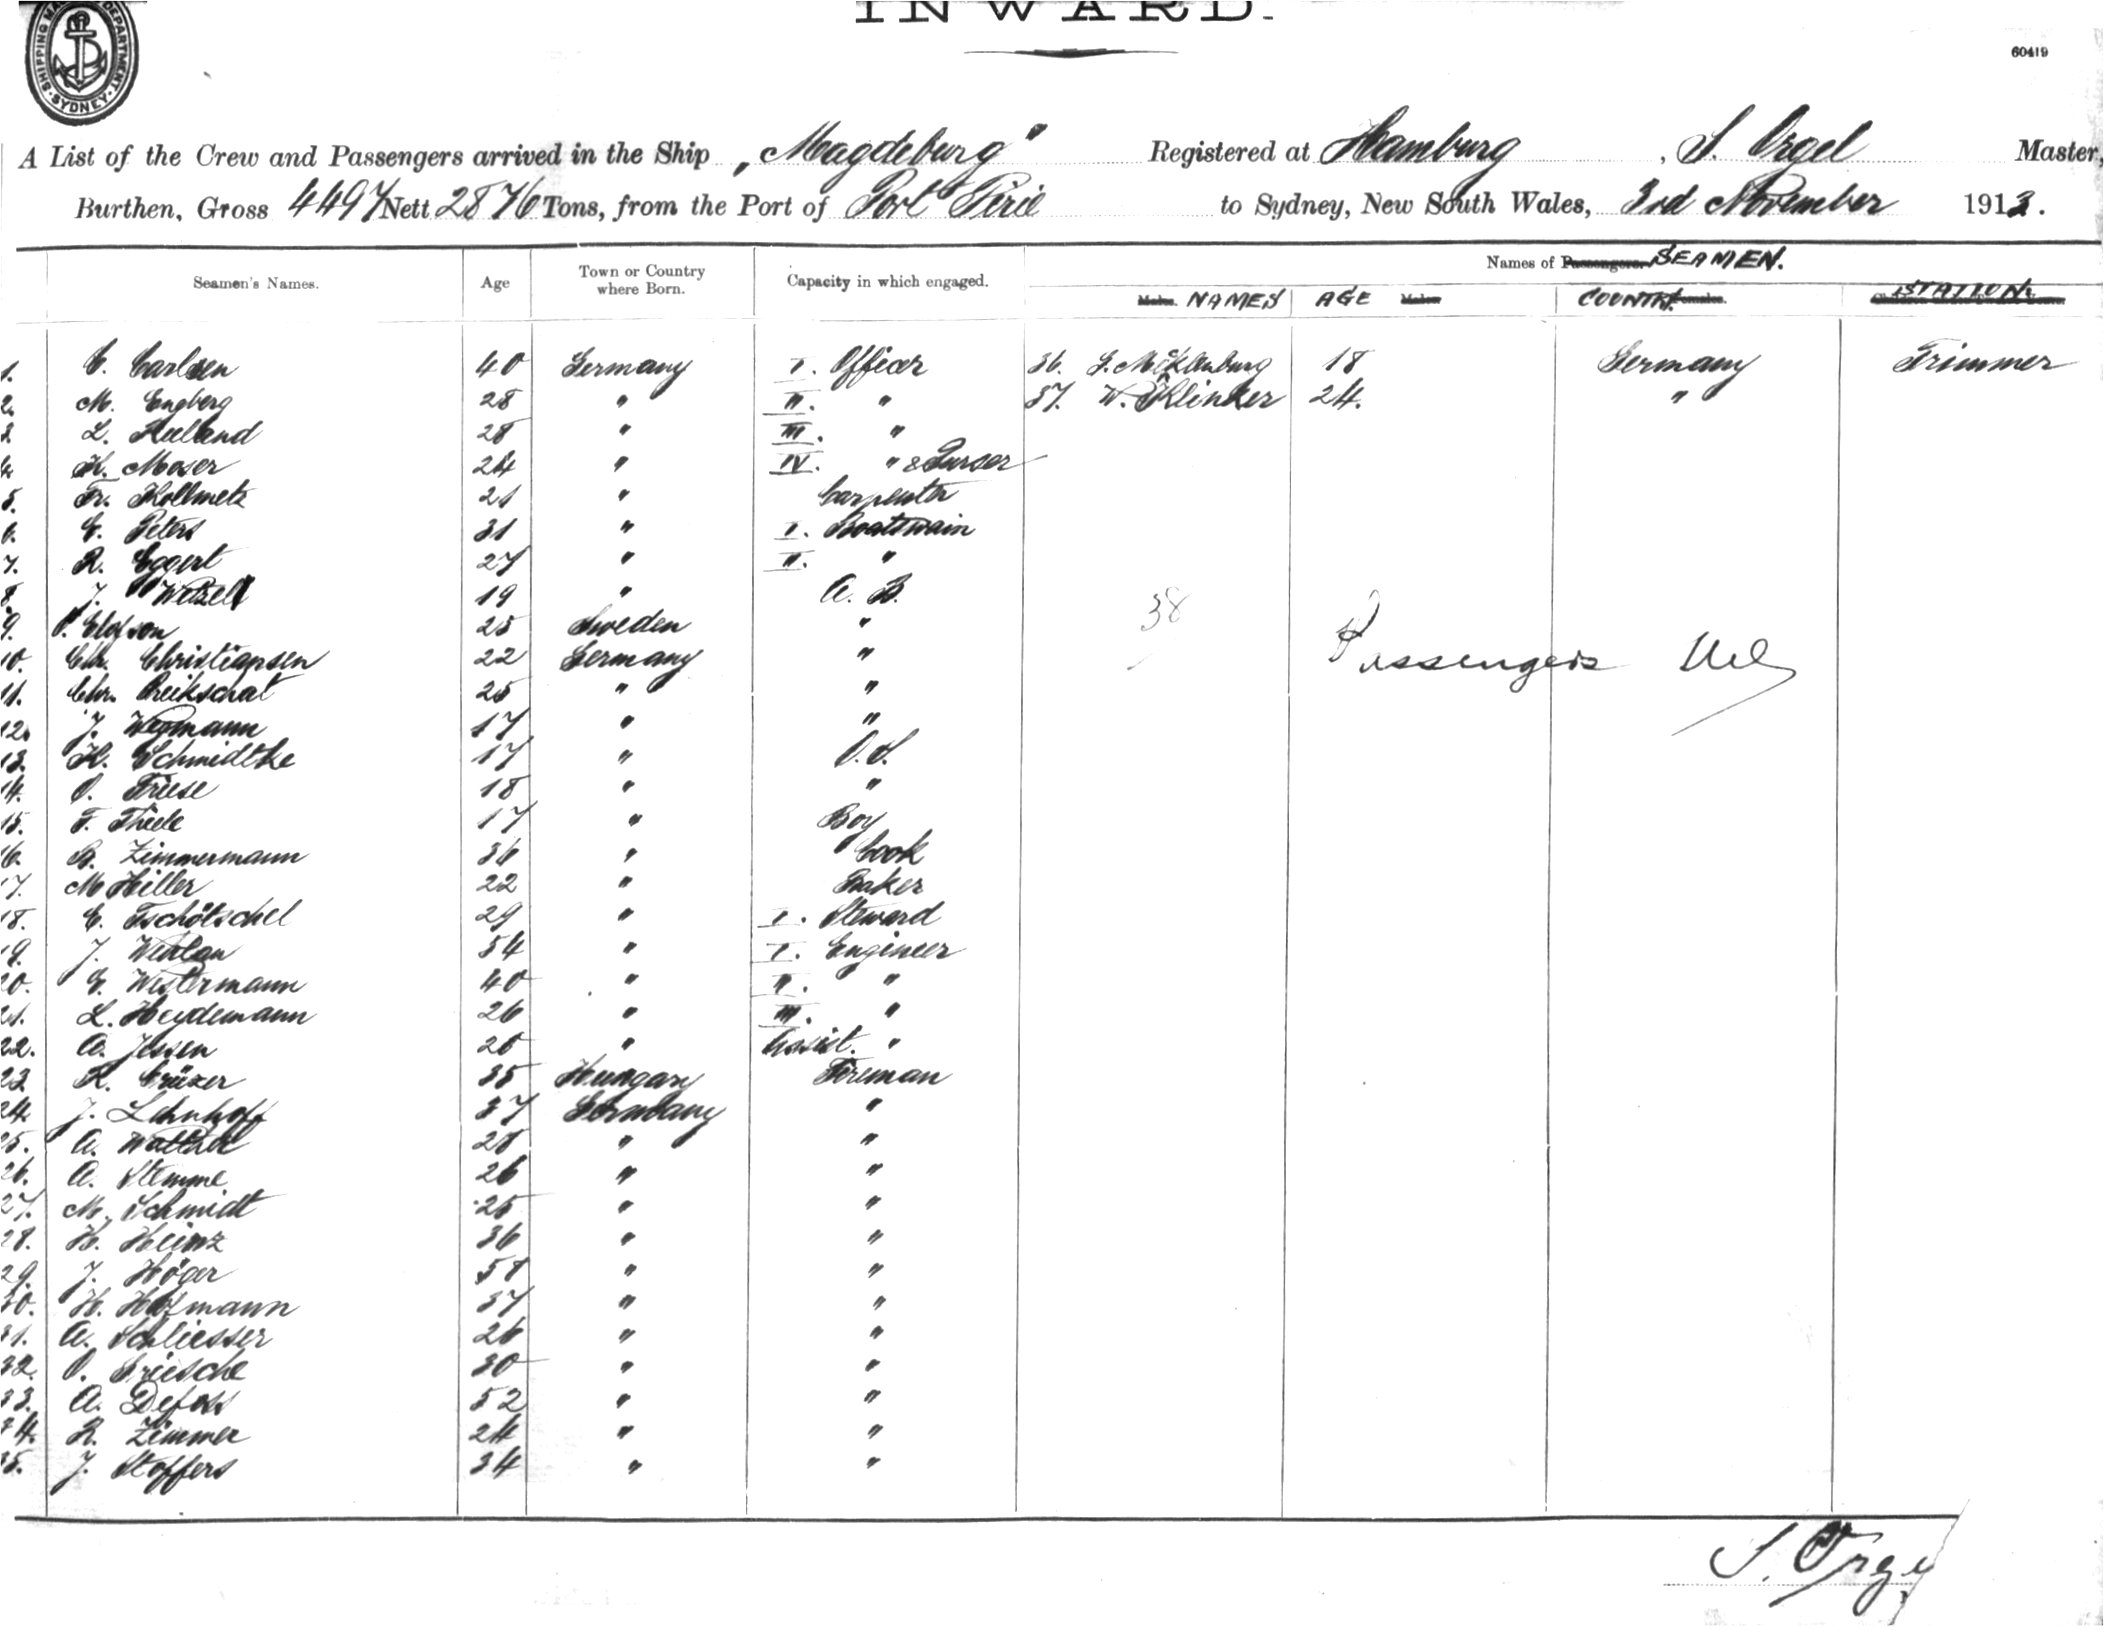 INWARD.
SHIPPING MA DEPARTMENT SYDNEY
60419
A List of the Crew and Passengers arrived in the Ship „Magdeburg" Registered at Hamburg, S. Orgel Master,
Burthen, Gross 4497 Nett 2876 Tons, from the Port of Port Pirie to Sydney, New South Wales, 3rd November 1913.
Seamen's Names. Age Town or Country where Born. Capacity in which engaged. Names of Passengers. SEAMEN.
Males. NAMES AGE COUNTRY. STATION.
1. C. Carlsen 40 Germany I. Officer 36. G. Mecklenburg 18 Germany Trimmer
2. M. Engberg 28 " II. " 37. W. Klinker 24. "
3. L. 28 " III. "
4. K. Moser 24 " IV. " & Purser
5. Fr. Kollmetz 21 " Carpenter
6. C. Peters 31 " I. Boatswain
7. R. Eggert 27 " II. "
8. J. Wetzell 19 " A. B.
9. O. Elofson 25 Sweden "
10. Chr. Christiansen 22 Germany "
11. Chr. Preikschat 25 " "
12. J. Wegmann 17 " "
13. K. Schmidtke 17 " O.S.
14. O. Friese 18 " "
15. F. Thiele 17 " Boy
16. B. Zimmermann 36 " Cook
17. M Hiller 22 " Baker
18. E. Tschötschel 29 " I. Steward
19. J. Wehlan 54 " I. Engineer
20. G. Westermann 40 " II. "
21. L. Heydemann 26 " III. "
22. A. Jessen 25 " Assist. "
23. R. Crüzer 35 Hungary Fireman
24. J. Lehnhoff 37 Germany "
25. A. 28 " "
26. A. Stemme 26 " "
27. M. Schmidt 25 " "
28. H. Heinz 36 " "
29. J. Höger 58 " "
30. H. Hofmann 37 " "
31. A. Schliesser 26 " "
32. O. Griesche 30 " "
33. A. Defoss 52 " "
34. R. Zimmer 24 " "
35. J. Stoffers 34 " "
38
Passengers Nil
S. Orgel